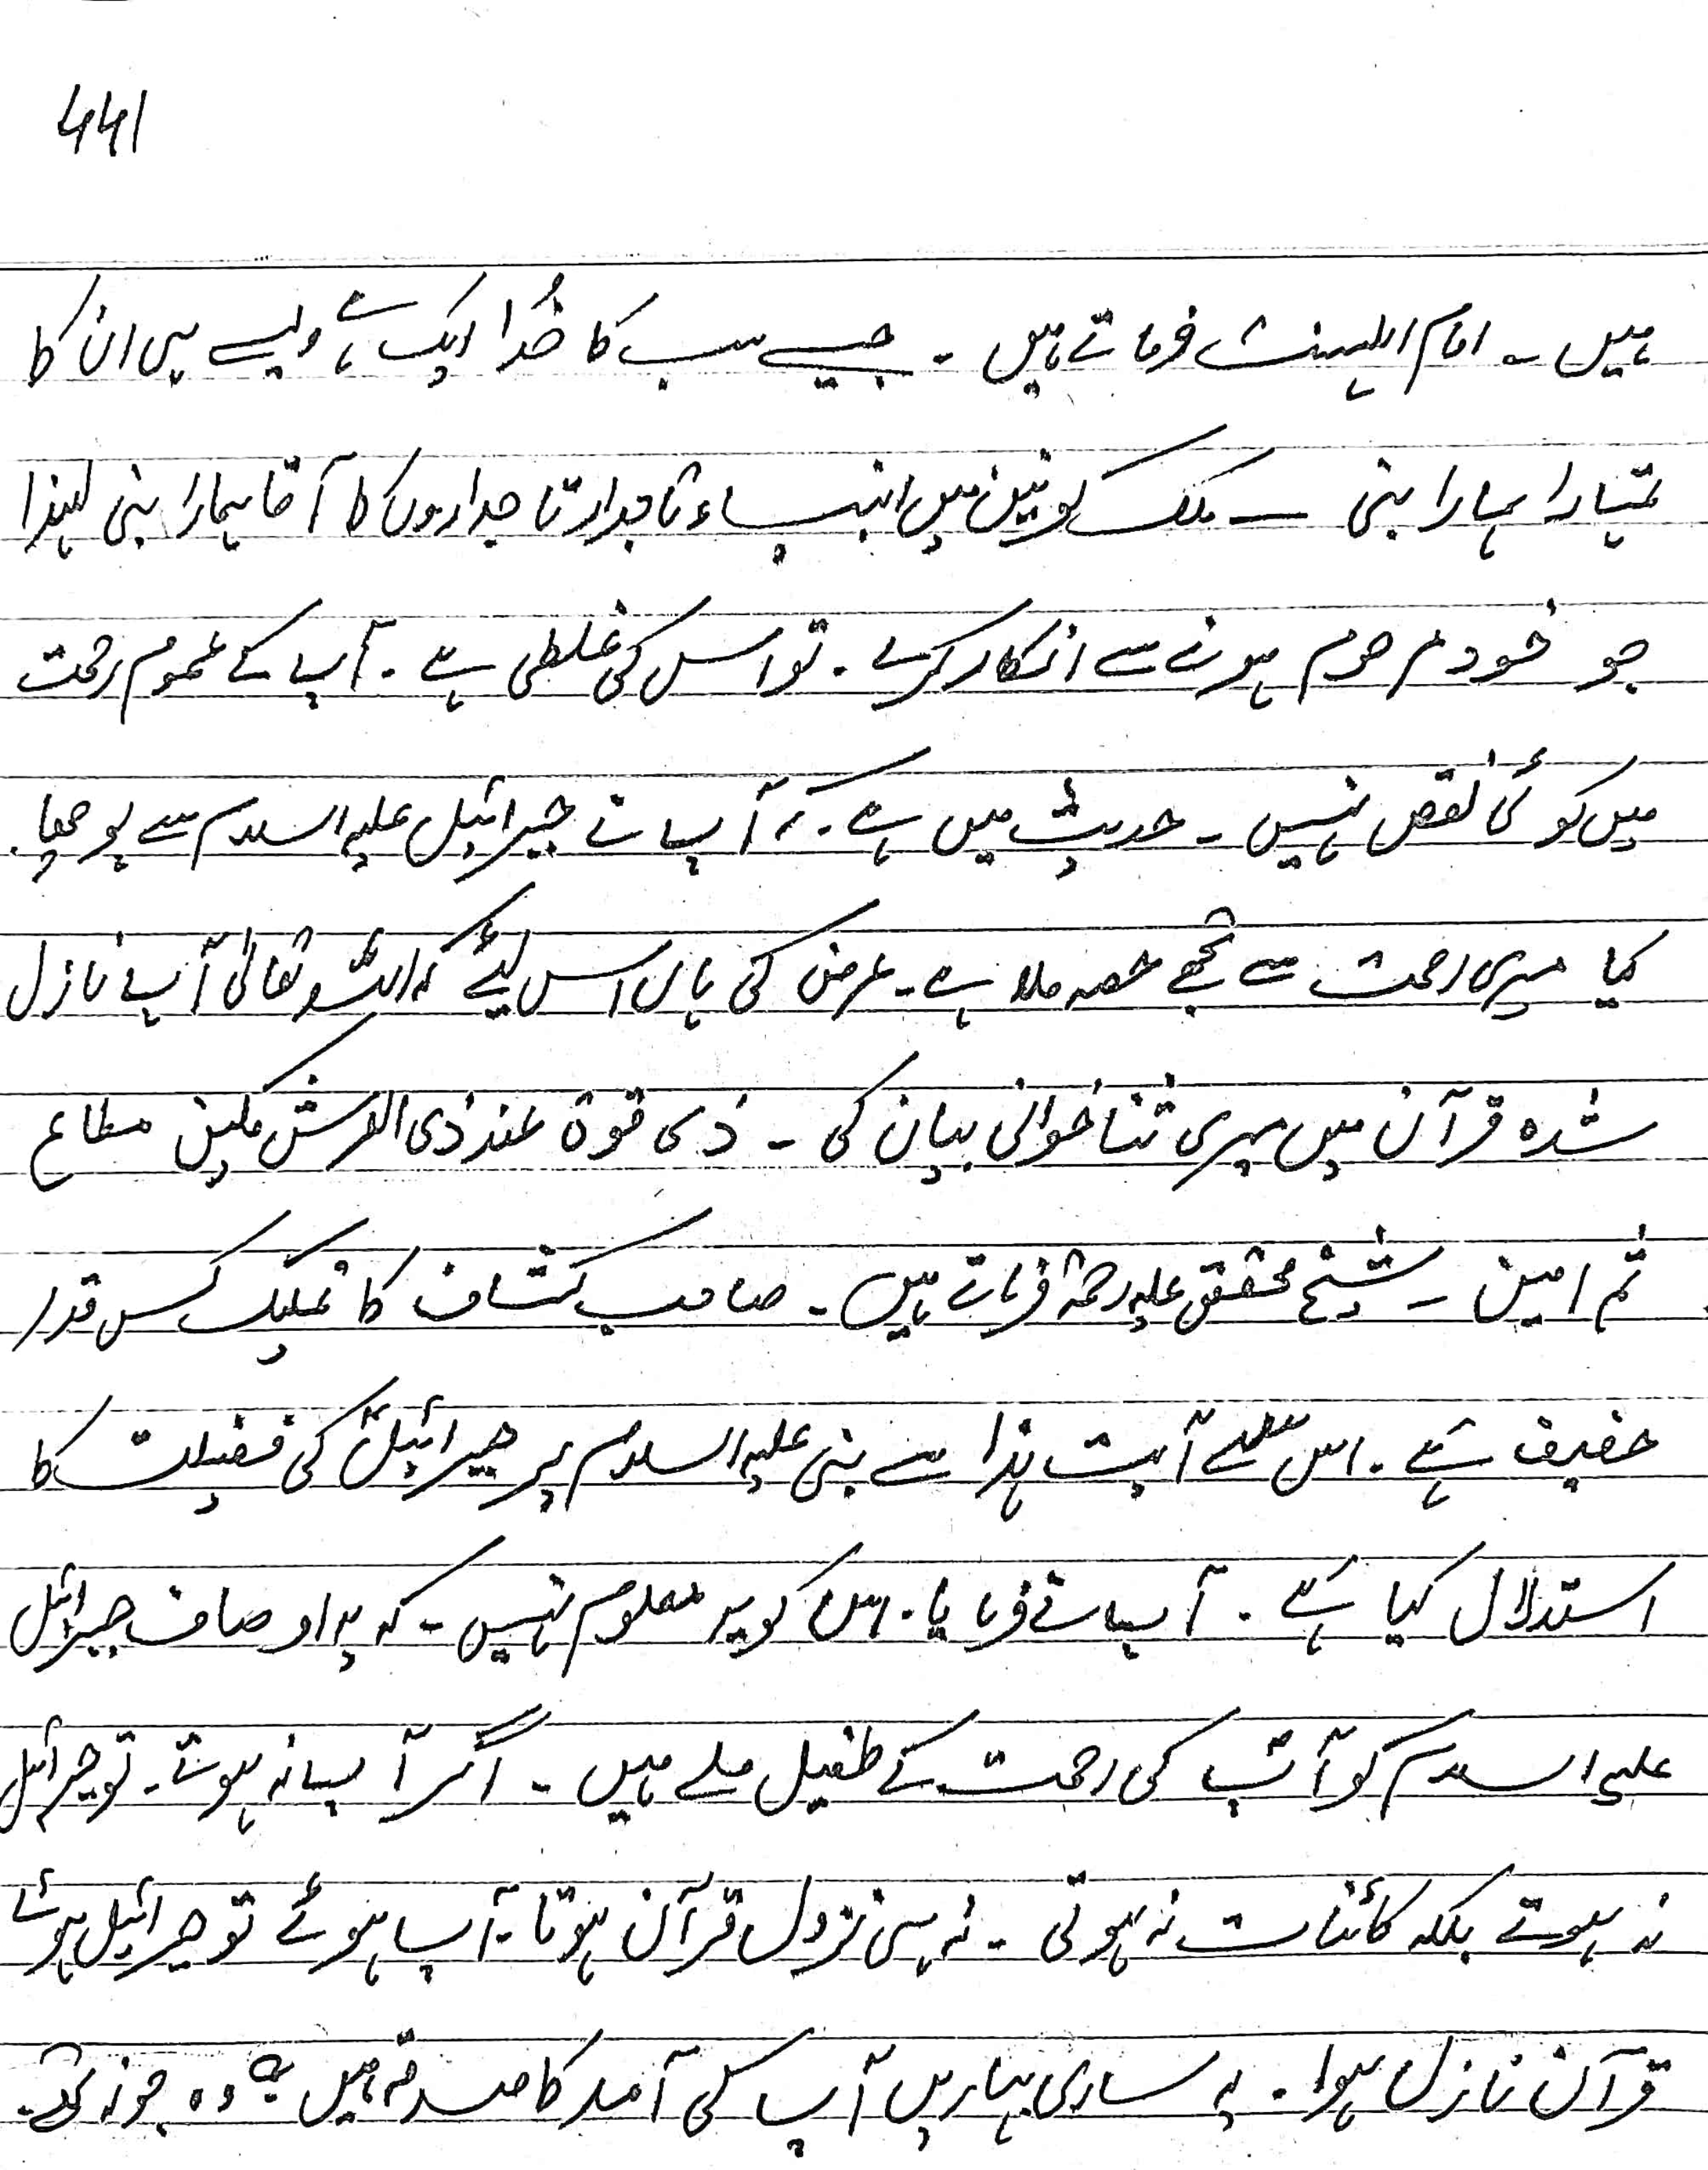 441
ہیں ۔ امام اہلسنت فرماتے ہیں ۔ جیسے سب کا خُدا ایک ہے ویسے ہی ان کا
تمہارا ہمارا نبی ۔ ملک کونین میں انبیاء تاجدار تاجداروں کا آقا ہمارا نبی لہٰذا
جو خود مرحوم ہونے سے انکار کرے ۔ تو اس کی غلطی ہے ۔ آپ کے عموم رحمت
میں کوئی نقص نہیں ۔ حدیث میں ہے ۔ کہ آپ نے جبرائیل علیہ السلام سے پوچھا ۔
کیا میری رحمت سے تجھے حصہ ملا ہے ۔ عرض کی ہاں اس لیئے کہ اللہ تعالیٰ آپ نازل
شدہ قرآن میں میری ثناخوانی بیان کی ۔ ذی قوۃ عند ذی العرش مکین مطاع
ثم امین ۔ شیخ محقق علیہ رحمۃ فرماتے ہیں ۔ صاحب کشاف کا تمسک کس قدر
خفیف ہے ۔ اس آیت ہذا سے نبی علیہ السلام پر جبرائیلؑ کی فضیلت کا
استدلال کیا ہے ۔ آپ نے فرمایا ۔ اس کو یہ معلوم نہیں ۔ کہ یہ اوصاف جبرائیل
علیہ السلام کو آپؐ کی رحمت کے طفیل ملے ہیں ۔ اگر آپ نہ ہوتے ۔ تو جبرائیل
نہ ہوتے بلکہ کائنات نہ ہوتی ۔ نہ ہی نزول قرآن ہوتا ۔ آپ ہوئے تو جبرائیل ہوئے
قرآن نازل ہوا ۔ یہ ساری بہاریں آپ کی آمد کا صدقہ ہیں وہ جو نہ تھے ۔